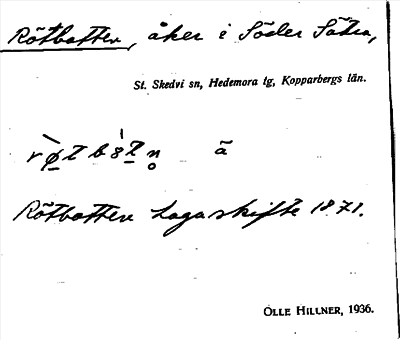 Rötbotten, åker i Söder Sätra,
St. Skedvi sn, Hedemora tg, Kopparbergs län.
ã
Rötbotten Lagaskifte 1871.
OLLE HILLNER, 1936.